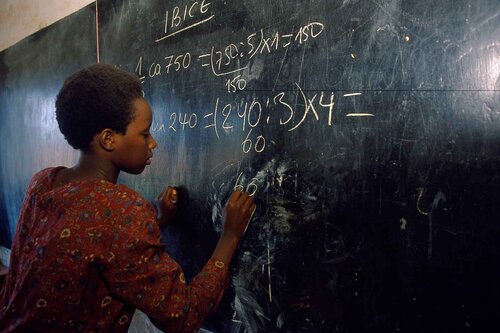 IBICE
1/5 ca 750 = (750:5)×1=150
150
240 =(240:3)×4 =
60
60